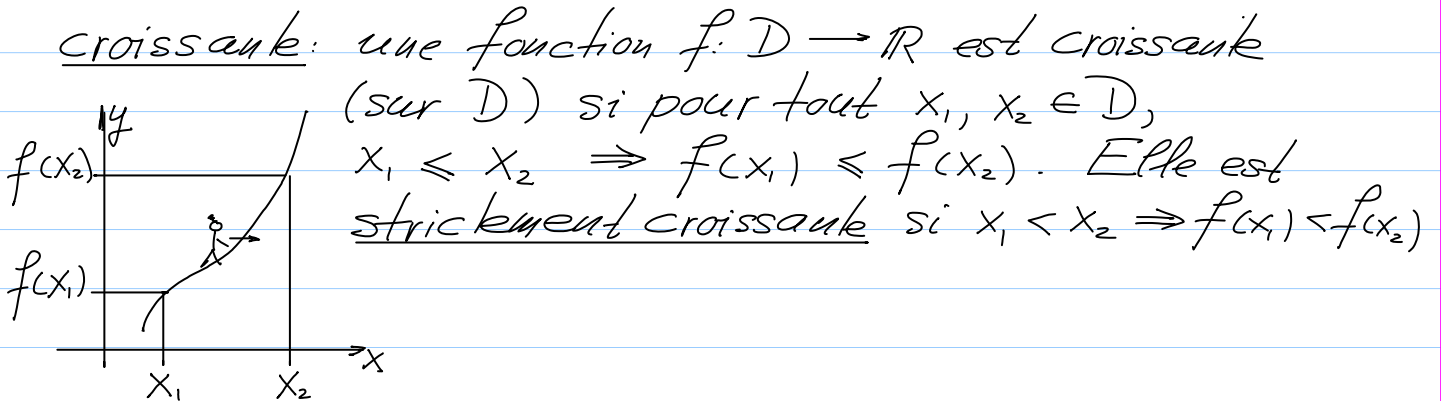 croissante: une fonction f: D → ℝ est croissante
(sur D) si pour tout x₁, x₂ ∈ D,
x₁ ⩽ x₂ ⇒ f(x₁) ⩽ f(x₂). Elle est
strictement croissante si x₁ < x₂ ⇒ f(x₁) < f(x₂)
y
f(x₂)
f(x₁)
x
x₁ x₂